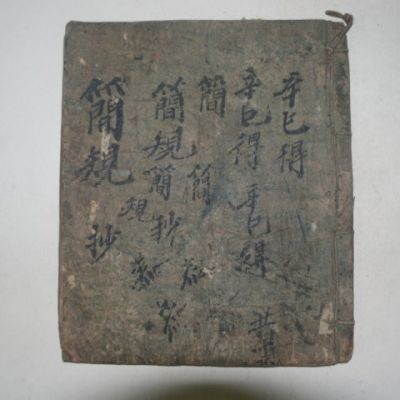 辛巳得
辛巳得 辛巳得
簡 簡
簡規簡抄
規
簡規 抄